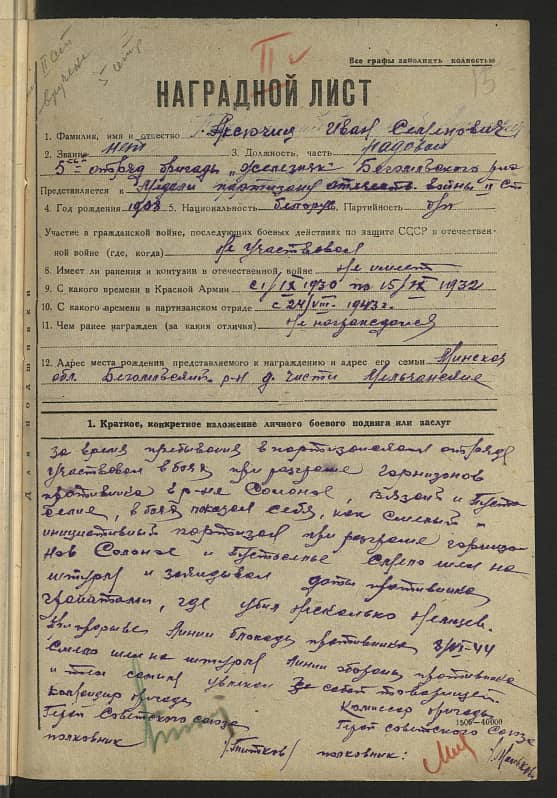 II ✓
II ст
вручена
5 отр
15
Все графы заполнять полностью
НАГРАДНОЙ ЛИСТ
1. Фамилия, имя и отчество Иван Семенович
2. Звание нет 3. Должность, часть рядовой
5ый отряд бригады „Железняк" Бегомльского р-на
Представляется к Медали партизану отечеств войны II ст
4. Год рождения 1908 5. Национальность белорус Партийность б/п
Участие в гражданской войне, последующих боевых действиях по защите СССР и отечествен-
ной войне (где, когда) Не участвовал
8. Имеет ли ранения и контузии в отечественной войне Не имеет
9. С какого времени в Красной Армии с 1/IX 1930 по 15/IX 1932
10. С какого времени в партизанском отряде с 24/VIII- 1943 г.
11. Чем ранее награжден (за какия отличия) Не награждался
12. Адрес места рождения представляемого к награждению и адрес его семьи Минская
обл. Бегомльский р-н д.
Для подшивки
1. Краткое, конкретное изложение личного боевого подвига или заслуг
За время пребывания в партизанском отряде
участвовал в боях при разгроме гарнизонов
противника в р-не и
в боях показал себя, как смелый и
инициативный партизан при разгроме гарнизо-
нов и смело шел на
штурм и закидывал доты противника
гранатами, где убил несколько немцев.
При прорыве линии блокады противника
смело шел на штурм линии обороны противника
и увлекал за собой товарищей.
Командир бригады Комиссар бригады
Герой Советского союза Герой Советского союза
1506—40000
полковник /Титков/ полковник: